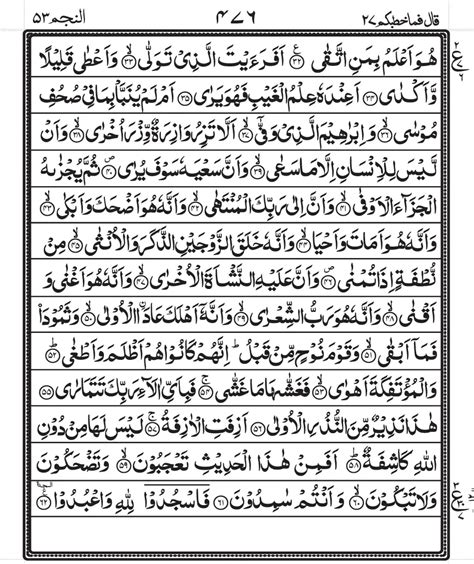 قال فما خطبكم ٢٧ ۴۷۶ النجم ۵۳
هُوَ اَعْلَمُ بِمَنِ اتَّقٰى ﴿۳۲﴾ اَفَرَءَيْتَ الَّذِيْ تَوَلّٰى ﴿۳۳﴾ وَاَعْطٰى قَلِيْلًا
وَّاَكْدٰى ﴿۳۴﴾ اَعِنْدَهٗ عِلْمُ الْغَيْبِ فَهُوَ يَرٰى ﴿۳۵﴾ اَمْ لَمْ يُنَبَّاْ بِمَا فِيْ صُحُفِ
مُوْسٰى ﴿۳۶﴾ وَاِبْرٰهِيْمَ الَّذِيْ وَفّٰى ﴿۳۷﴾ اَلَّا تَزِرُ وَازِرَةٌ وِّزْرَ اُخْرٰى ﴿۳۸﴾ وَاَنْ
لَّيْسَ لِلْاِنْسَانِ اِلَّا مَا سَعٰى ﴿۳۹﴾ وَاَنَّ سَعْيَهٗ سَوْفَ يُرٰى ﴿۴۰﴾ ثُمَّ يُجْزٰىهُ
الْجَزَآءَ الْاَوْفٰى ﴿۴۱﴾ وَاَنَّ اِلٰى رَبِّكَ الْمُنْتَهٰى ﴿۴۲﴾ وَاَنَّهٗ هُوَ اَضْحَكَ وَاَبْكٰى ﴿۴۳﴾
وَاَنَّهٗ هُوَ اَمَاتَ وَاَحْيَا ﴿۴۴﴾ وَاَنَّهٗ خَلَقَ الزَّوْجَيْنِ الذَّكَرَ وَالْاُنْثٰى ﴿۴۵﴾ مِنْ
نُّطْفَةٍ اِذَا تُمْنٰى ﴿۴۶﴾ وَاَنَّ عَلَيْهِ النَّشْاَةَ الْاُخْرٰى ﴿۴۷﴾ وَاَنَّهٗ هُوَ اَغْنٰى وَ
اَقْنٰى ﴿۴۸﴾ وَاَنَّهٗ هُوَ رَبُّ الشِّعْرٰى ﴿۴۹﴾ وَاَنَّهٗٓ اَهْلَكَ عَادَا۟ الْاُوْلٰى ﴿۵۰﴾ وَثَمُوْدَا۟
فَمَآ اَبْقٰى ﴿۵۱﴾ وَقَوْمَ نُوْحٍ مِّنْ قَبْلُ ؕ اِنَّهُمْ كَانُوْا هُمْ اَظْلَمَ وَاَطْغٰى ﴿۵۲﴾
وَالْمُؤْتَفِكَةَ اَهْوٰى ﴿۵۳﴾ فَغَشّٰىهَا مَا غَشّٰى ﴿۵۴﴾ فَبِاَيِّ اٰلَآءِ رَبِّكَ تَتَمَارٰى ﴿۵۵﴾
هٰذَا نَذِيْرٌ مِّنَ النُّذُرِ الْاُوْلٰى ﴿۵۶﴾ اَزِفَتِ الْاٰزِفَةُ ﴿۵۷﴾ لَيْسَ لَهَا مِنْ دُوْنِ
اللّٰهِ كَاشِفَةٌ ﴿۵۸﴾ اَفَمِنْ هٰذَا الْحَدِيْثِ تَعْجَبُوْنَ ﴿۵۹﴾ وَتَضْحَكُوْنَ
وَلَا تَبْكُوْنَ ﴿۶۰﴾ وَاَنْتُمْ سٰمِدُوْنَ ﴿۶۱﴾ فَاسْجُدُوْا لِلّٰهِ وَاعْبُدُوْا ﴿۶۲﴾